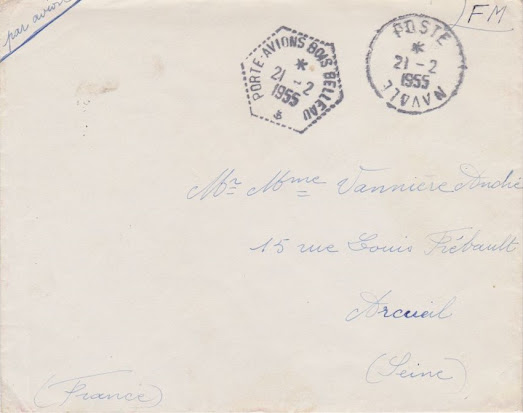 par avion
FM
PORTE-AVIONS BOIS BELLEAU
*
21 - 2
1955
POSTE
*
21 - 2
1955
NAVALE
Mr Mme Vannière André
15 rue Louis Frébault
Arcueil
(Seine)
(France)